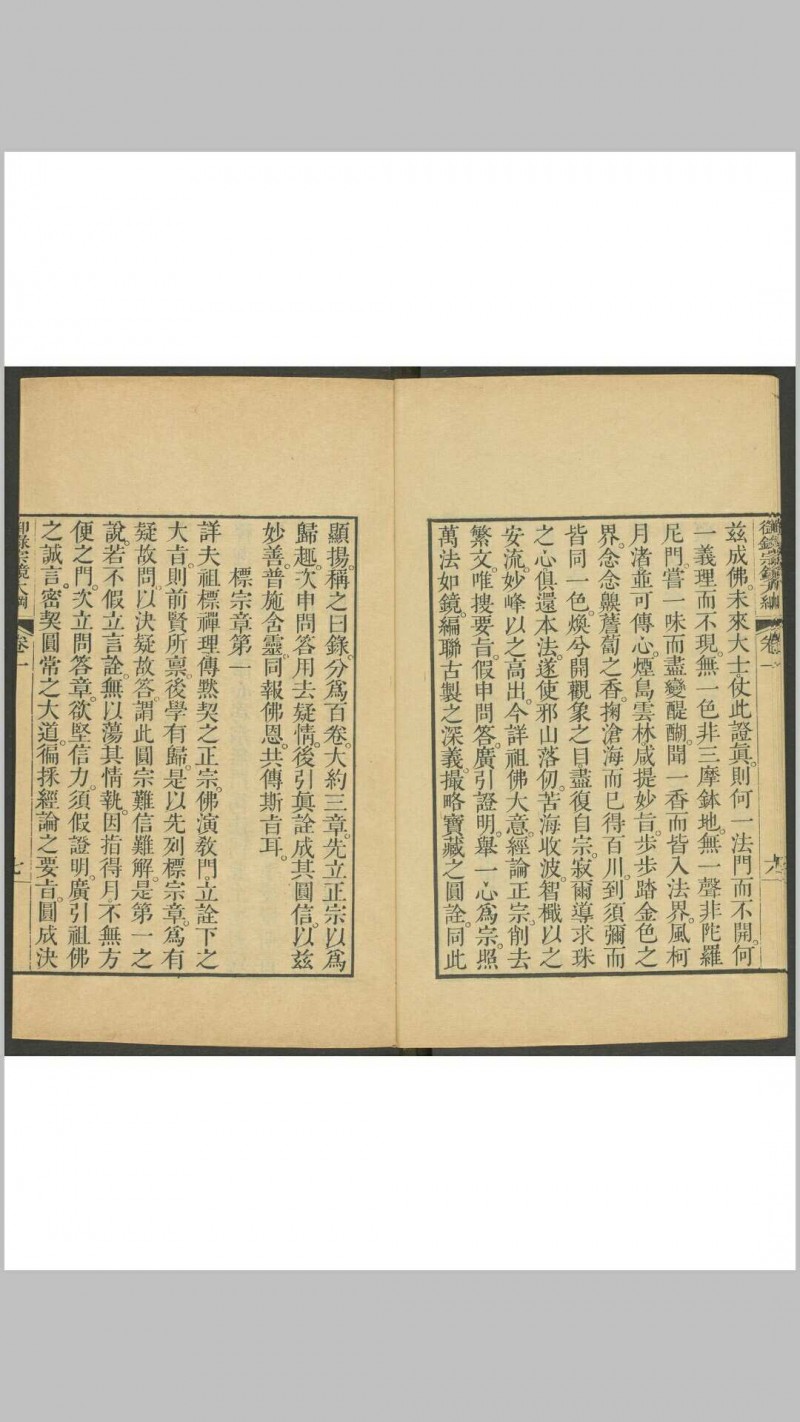 御錄宗鏡大綱 卷一 六
兹成佛。未來大士仗此證眞。則何一法門而不開。何
一義理而不現。無一色非三摩鉢地。無一聲非陀羅
尼門。嘗一味而盡變醍醐。聞一香而皆入法界。風柯
月渚竝可傳心。煙島雲林咸提妙旨。步步踏金色之
界。念念齅薝蔔之香。掬滄海而已得百川。到須彌而
皆同一色。煥兮開觀象之目。盡復自宗。寂爾導求珠
之心。俱還本法。遂使邪山落仞。苦海收波。智檝以之
安流。妙峰以之高出。今詳祖佛大意。經論正宗。削去
繁文。唯搜要旨。假申問答。廣引證明。舉一心爲宗。照
萬法如鏡。編聯古製之深義。撮略寶藏之圓詮。同此
顯揚。稱之曰錄。分爲百卷。大約三章。先立正宗。以爲
歸趣。次申問答。用去疑情。後引眞詮。成其圓信。以兹
妙善。普施含靈。同報佛恩。共傳斯旨耳。
標宗章第一
詳夫祖標禪理。傳默契之正宗。佛演敎門。立詮下之
大旨。則前賢所禀。後學有歸。是以先列標宗章。爲有
疑故問。以決疑故答。謂此圓宗難信難解。是第一之
說。若不假立言詮。無以蕩其情執。因指得月。不無方
便之門。次立問答章。欲堅信力。須假證明。廣引祖佛
之誠言。密契圓常之大道。徧採經論之要旨。圓成決
御錄宗鏡大綱 卷一 七